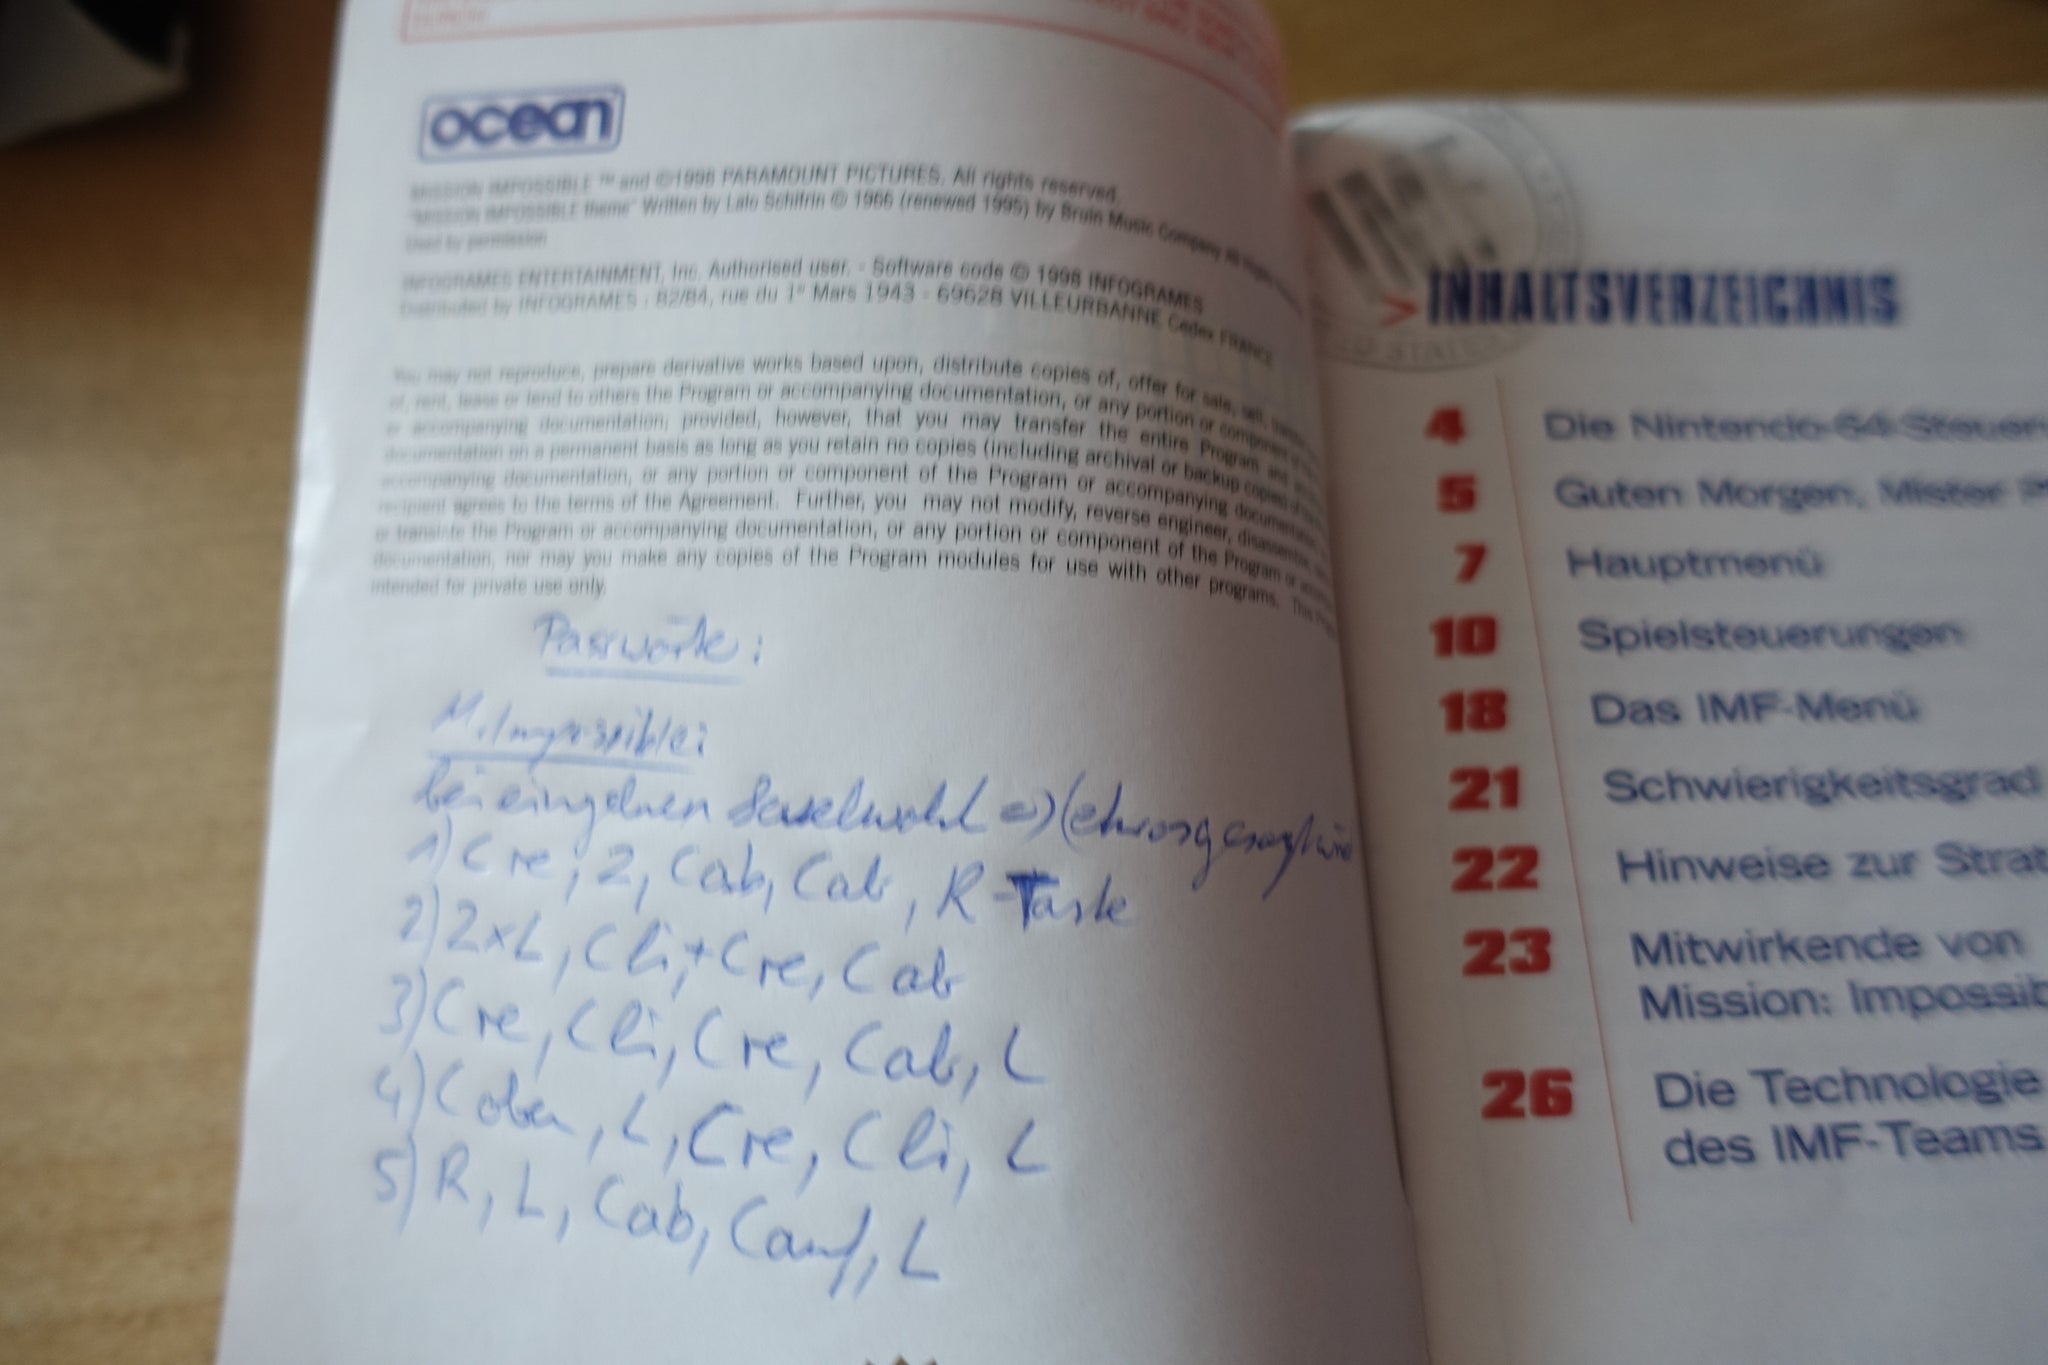 ocean
MISSION IMPOSSIBLE ™ and ©1998 PARAMOUNT PICTURES. All rights reserved.
"MISSION IMPOSSIBLE theme" Written by Lalo Schifrin © 1966 (renewed 1995) by Bruin Music Company All
Used by permission
INFOGRAMES ENTERTAINMENT, Inc. Authorised user. - Software code © 1998 INFOGRAMES
Distributed by INFOGRAMES : 82/84, rue du 1er Mars 1943 - 69628 VILLEURBANNE Cedex FRANCE
You may not reproduce, prepare derivative works based upon, distribute copies of, offer for sale, sell,
of, rent, lease or lend to others the Program or accompanying documentation, or any portion or component
or accompanying documentation; provided, however, that you may transfer the entire Program and
documentation on a permanent basis as long as you retain no copies (including archival or backup copies
accompanying documentation, or any portion or component of the Program or accompanying documentation
recipient agrees to the terms of the Agreement. Further, you may not modify, reverse engineer,
or translate the Program or accompanying documentation, or any portion or component of the Program or
documentation, nor may you make any copies of the Program modules for use with other programs. This
intended for private use only.
Passwörte:
M. Impossible:
bei
1) Cre, 2, Cab, Cab, R-Taste
2) 2xL, Cli, + Cre, Cab
3) Cre, Cli, Cre, Cab, L
4) Coben, L, Cre, Cli, L
5) R, L, Cab, Cauf, L
>INHALTSVERZEICHNIS
4 Die Nintendo-64-Steuer
5 Guten Morgen, Mister
7 Hauptmenü
10 Spielsteuerungen
18 Das IMF-Menü
21 Schwierigkeitsgrad
22 Hinweise zur Strat
23 Mitwirkende von
Mission: Impossib
26 Die Technologie
des IMF-Teams